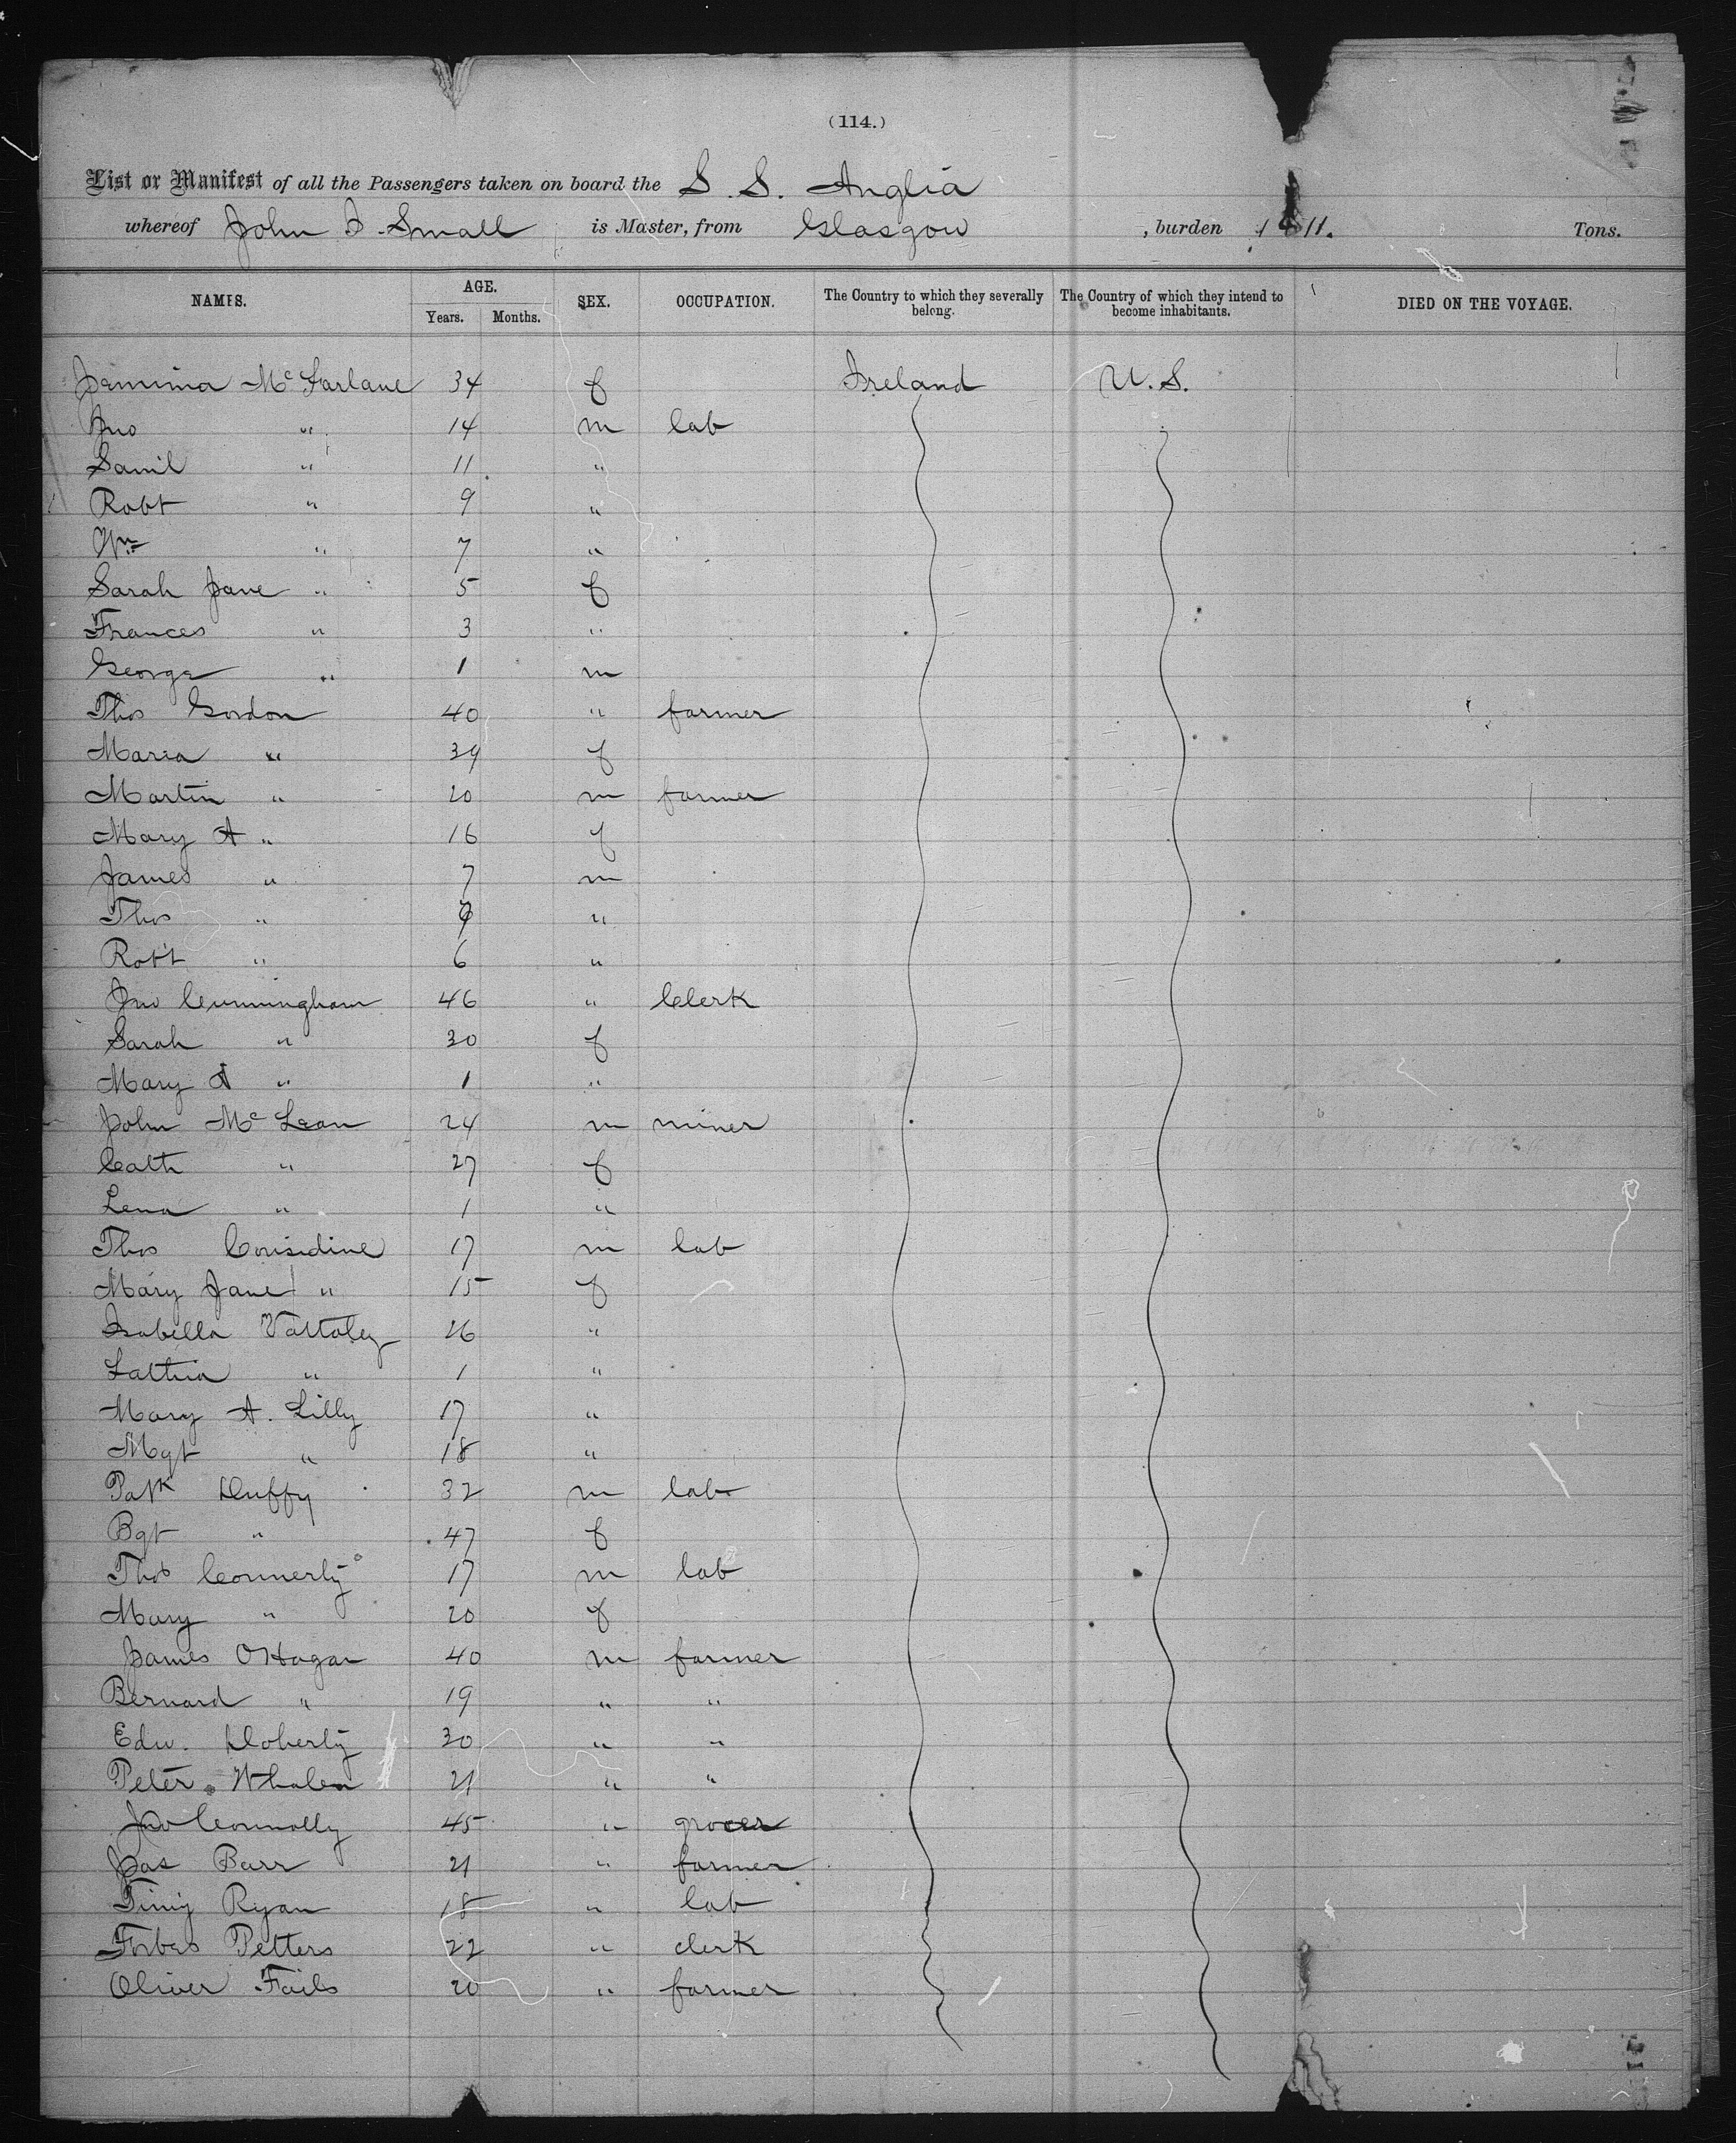 (114.)
List or Manifest of all the Passengers taken on board the S. S. Anglia
whereof John I. Small is Master, from Glasgow , burden Tons.
NAMES. AGE. SEX. OCCUPATION. The Country to which they severally belong. The Country of which they intend to become inhabitants. DIED ON THE VOYAGE.
Years. Months.
Jemima McFarlane 34 f Ireland U.S.
Jno " 14 m lab
Saml " 11 "
Robt " 9 "
Wm " 7 "
Sarah Jane " 5 f
Frances " 3 "
George " 1 m
Thos Gordon 40 " farmer
Maria " 39 f
Martin " 20 m farmer
Mary A " 16 f
James " 7 m
Thos " "
Robt " 6 "
Jno Cunningham 46 " Clerk
Sarah " 30 f
Mary A " 1 "
John McLean 24 m miner
Cath " 27 f
Lena " 1 "
Thos Considine 17 m lab
Mary Jane " 15 f
Isabella 26 "
" 1 "
Mary A. Lilly 17 "
Mgt " 18 "
Patk Duffy 32 m lab
Bgt " 47 f
Thos Connerty 17 m lab
Mary " 20 f
James OHagan 40 m farmer
Bernard " 19 " "
Edw. Doherty 30 " "
Peter Whalen 21 " "
Jno Connolly 45 " grocer
Jas Barr 21 " farmer
Timy Ryan 18 " lab
Forbes Petters 22 " clerk
Oliver Fails 20 " farmer